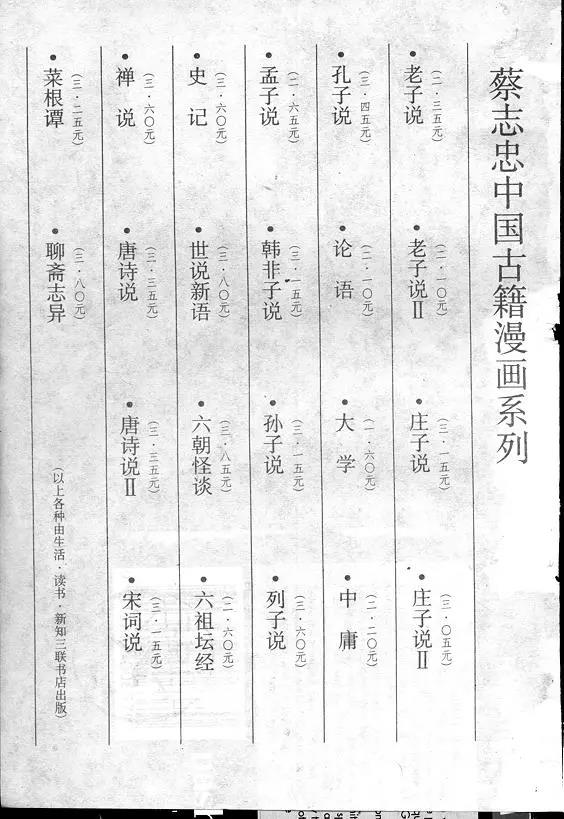 蔡志忠中国古籍漫画系列
•老子说(二·三五元)
•老子说Ⅱ(二·一〇元)
•庄子说(三·一五元)
•庄子说Ⅱ(三·〇五元)
•孔子说(三·四五元)
•论语(二·一〇元)
•大学(一·六〇元)
•中庸(二·二〇元)
•孟子说(二·六五元)
•韩非子说(三·一五元)
•孙子说(三·一五元)
•列子说(三·六〇元)
•史记(三·六〇元)
•世说新语(三·八〇元)
•六朝怪谈(三·八五元)
•六祖坛经(二·六〇元)
•禅说(三·六〇元)
•唐诗说(三·三五元)
•唐诗说Ⅱ(三·三五元)
•宋词说(三·一五元)
•菜根谭(三·二五元)
•聊斋志异(三·八〇元)
(以上各种由生活·读书·新知三联书店出版)